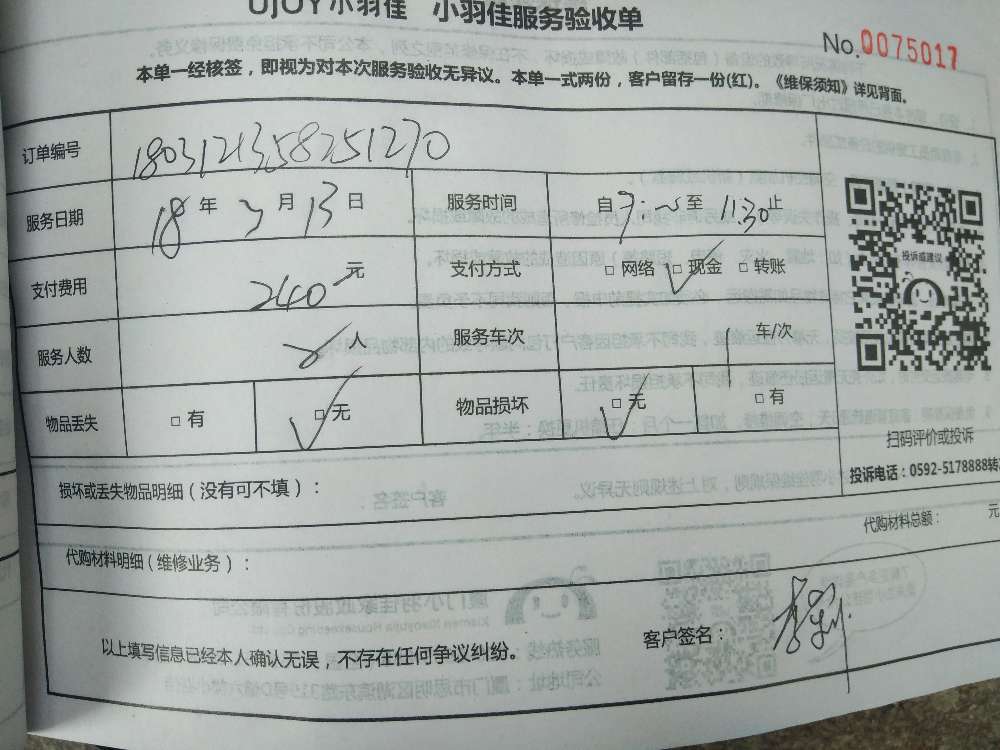 UJOY小羽佳 小羽佳服务验收单
No.0075017
本单一经核签，即视为对本次服务验收无异议。本单一式两份，客户留存一份(红)。《维保须知》详见背面。
订单编号 1803121358251270
服务日期 18年3月13日 服务时间 自9:~至11:30止
支付费用 240元 支付方式 □网络 □现金 □转账
投诉或建议
服务人数 2人 服务车次 1车/次
物品丢失 □有 □无 物品损坏 □无 □有
扫码评价或投诉
投诉电话：0592-5178888转
损坏或丢失物品明细（没有可不填）：
代购材料总额： 元
代购材料明细（维修业务）：
以上填写信息已经本人确认无误，不存在任何争议纠纷。 客户签名：